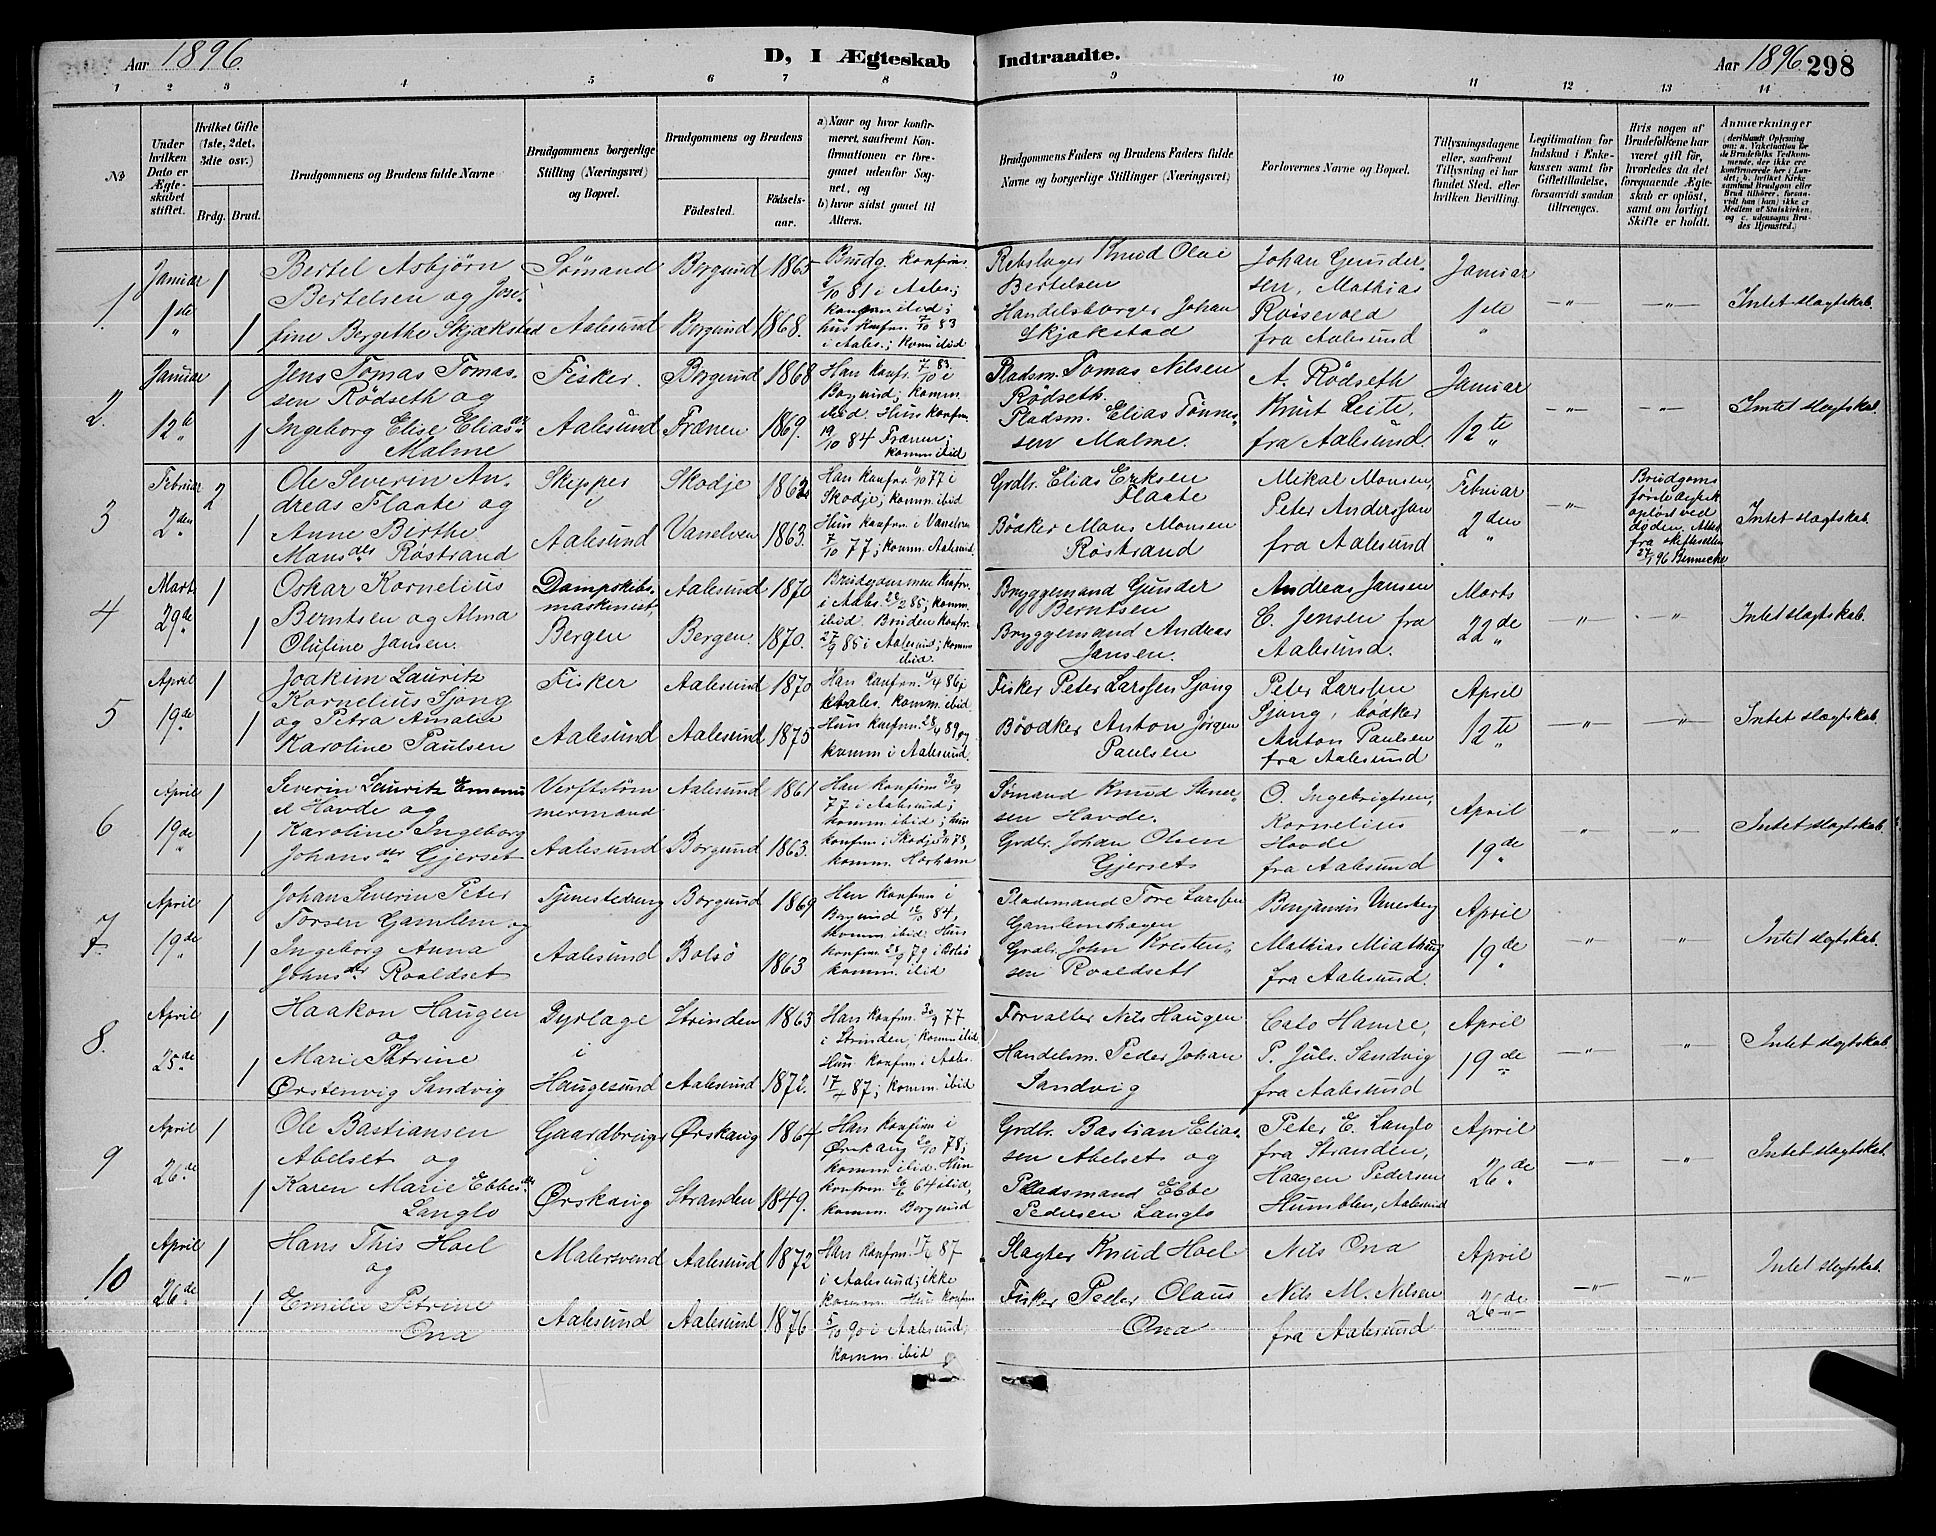 Aar 1896.
D, I Ægteskab Indtraadte.
Aar 1896. 298
1 2 3 4 5 6 7 8 9 10 11 12 13 14
No
Under hvilken Dato er Ægteskabet stiftet.
Hvilket Gifte (1ste, 2det, 3die osv.)
Brdg. Brud.
Brudgommens og Brudens fulde Navne
Brudgommens borgerlige Stilling (Næringsvei) og Bopæl.
Brudgommens og Brudens
Födested.
Födselsaar.
a) Naar og hvor konfirmeret, saafremt Konfirmationen er foregaaet udenfor Sognet, og
b) hvor sidst gaaet til Alters.
Brudgommens Faders og Brudens Faders fulde Navne og borgerlige Stillinger (Næringsvei)
Forlovernes Navne og Bopæl.
Tillysningsdagene eller, saafremt Tillysning ei har fundet Sted, efter hvilken Bevilling.
Legitimation for Indskud i Enkekassen samt for Giftetilladelse, forsaavidt saadan tiltrænges.
Hvis nogen af Brudefolkene har været gift för, hvorledes da det foregaaende Ægteskab er oplöst, samt om lovligt Skifte er holdt.
Anmærkninger
1. Januar 1ste " 1 1
Bertel Asbjørn
Bertelsen og Jose-
fine Bergethe Skjækstad
Sömand
Aalesund
Borgund 1865
Borgund 1868.
Brudg. konfirm.
2/10 81 i Aales.;
komm ibid;
hus konfirm. 7/10 83
i Aales.; komm ibid
Rebslager Knud Olai
Bertelsen
Handelsborger Johan
Skjækstad
Johan Gunder-
sen, Mathias
Roisevold
fra Aalesund
Januar
1ste
"
-"- -"- Intet slægtskab.
2. Januar 12te " 1 1
Jens Tomas Tomas-
sen Rödseth og
Ingeborg Elise Eliasdr
Malme
Fisker.
Aalesund
Borgund 1868
Frænen 1869.
Han konfr. 7/10 83 i
Borgund; komm.
ibid. Hun konfrm.
19/10 84 Frænen;
komm ibid
Pladsm. Tomas Nilsen
Rödseth.
Pladsm. Elias Tønnes-
sen Malme.
A. Rödseth
Knut Leite,
fra Aalesund.
Januar
12te
"
-"- -"- Intet slægtskab.
3 Februar 2den " 2 1
Ole Severin An-
dreas Flaate og
Anne Birthe
Mansdtr Röstrand
Skipper
i
Aalesund
Skodje 1862
Vanelven 1863.
Han konfr. 77 i
Skodje; komm. ibid
Hun konfrm. i Vanelven
7/10 77; komm. Aalesund.
Grdbr. Elias Eriksen
Flaate
Bödker Mons Monsen
Röstrand
Mikal Monsen,
Peter Anderssen
fra Aalesund
Februar
2den
"
-"-
Brudgoms
förste ægtsk
oplöst ved
döden. Attest
fra skifteretten
27/1 96 Bennecke
Intet slægtskab.
4 Marts 29de " 1 1
Oskar Kornelius
Berntsen og Alma
Olufine Jansen.
Dampskibs-
maskinist,
Bergen
Aalesund 1870
Bergen 1870.
Brudgommen konfr.
i Aales. 22/2 85; komm.
ibid. Bruden konfr.
27/9 85 i Aalesund; komm
ibid.
Bryggemand Gunder
Berntsen
Bryggemand Andreas
Jansen.
Andreas Jansen
C. Jensen fra
Aalesund.
Marts
22de
"
-"- -"- Intet slægtskab.
5 April 19de " 1 1
Joakim Lauritz
Kornelius Sjong
og Petra Amalie
Karoline Paulsen
Fisker
Aalesund
Aalesund 1870
Aalesund 1875
Han konfrm. 4/4 86 i
Aales. komm. ibid.
Hun konfrm. 28/4 89 og
komm i Aalesund.
Fisker Peter Larssen Sjong
Bödker Anton Jörgen
Paulsen
Peter Larssen
Sjong, bödker
Anton Paulsen
fra Aalesund
April
12te
"
-"- -"- Intet slægtskab.
6 April 19de " 1 1
Severin Lauritz Emanu
el Hovde og
Karoline Ingeborg
Johansdtr Gjerset
Verftstöm
mermand
Aalesund
Aalesund 1861
Borgund 1863.
Han konfirm 30/9
77 i Aalesund;
komm ibid; hun
konfrm i Skodje 78,
komm. Harham
Sömand Knud Stener-
sen Hovde.
Grdbr. Johan Olsen
Gjerset
O. Ingebrigtsen,
Kornelius
Hovde
fra Aalesund
April
19de
"
-"- -"- Intet slægtskab.
7. April 19de " 1 1
Johan Severin Peter
Torsen Gamlem og
Ingeborg Anna
Johnsdtr Roaldset
Tjenestedreng
Aalesund
Borgund 1869
Bolsö 1863
Han konfrm i
Borgund 84,
komm ibid; Hun
konfrm. 28/9 79 i Bolsö
komm. ibid
Pladsmand Tore Larssen
Gamlemshagen
Grdbr. John Kresten-
sen Roaldset
Benjamin
Mathias
fra Aalesund.
April
19de
"
-"- -"- Intet slægtskab.
8. April 25de " 1 1
Haakon Haugen
og
Marie Petrine
Ørstenvig Sandvig
Dyrlæge
i
Haugesund
Strinden 1863
Aalesund 1872.
Han konfrm. 30/9 77
i Strinden; komm ibid
Hun konfrm i Aales.
87; komm. ibid
Forvalter Nils Haugen
Handelsm. Peder Johan
Sandvig
Cato Hamre,
P. Jul. Sandvig
fra Aalesund
April
19de
"
-"- -"- Intet slægtskab.
9 April 26de " 1 1
Ole Bastiansen
Abelset og
Karen Marie Ebbesdtr
Langlo
Gaardbruger
i
Ørskaug
Ørskaug 1864
Stranden 1849.
Han konfirm i
Ørskaug 20/10 78;
komm ibid. Hun
konfrm. 26/6 64 ibid,
komm. Borgund
Grdbr. Bastian Elias-
sen Abelset og
Pladsmand Ebbe
Pedersen Langlo
Peter E. Langlo
fra Stranden,
Haagen Pedersen
Humblen, Aalesund
April
26de
"
-"- -"- Intet slægtskab.
10 April 26de " 1 1
Hans This Hoel
og
Emilie Petrine
Ona
Malersvend
Aalesund
Aalesund 1872
Aalesund 1876
Han konfrm. 87
i Aalesund; ikke
komm. Hun konfrm
5/10 90 i Aalesund;
komm. ibid
Slagter Knud Hoel
Fisker Peder Olaus
Ona
Nils Ona
Nils M. Nilsen
fra Aalesund
April
26de
-"-
-"- -"- Intet slægtskab.